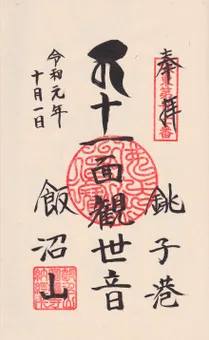 奉拝
銚子港
十一面観世音
令和元年
十月一日
飯沼山